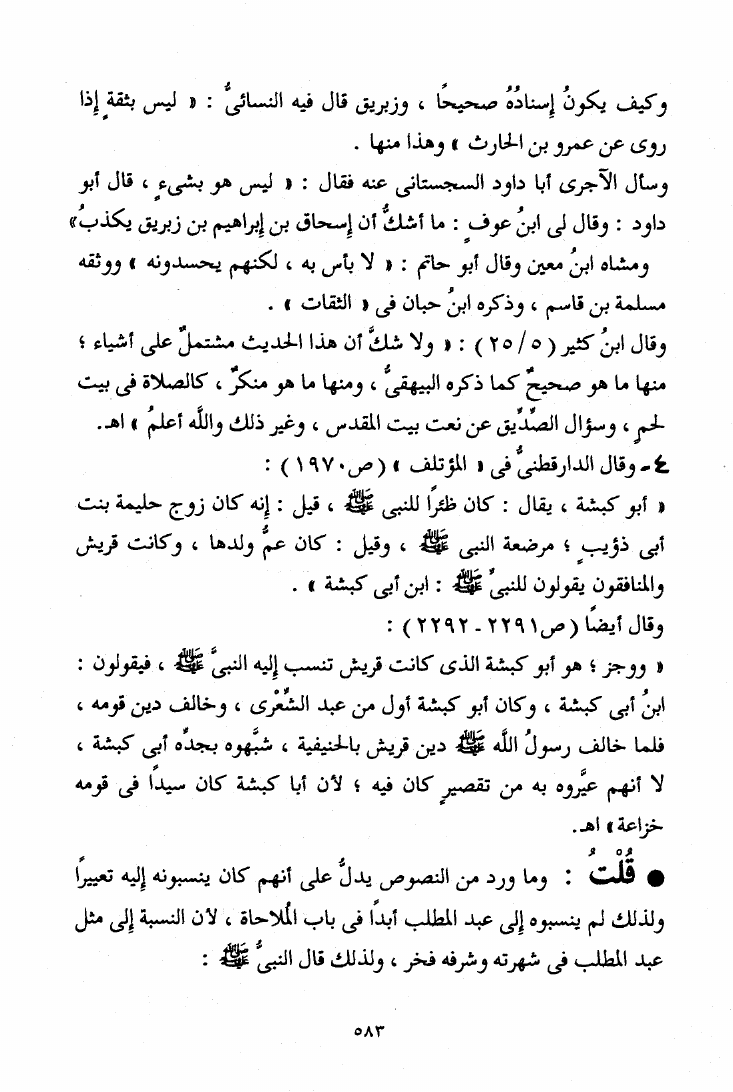 وكيف يكونُ إسنادُهُ صحيحًا ، وزبريق قال فيه النسائىُّ : « ليس بثقةٍ إذا
روى عن عمرو بن الحارث » وهذا منها .
وسأل الآجرى أبا داود السجستانى عنه فقال : « ليس هو بشىءٍ ، قال أبو
داود : وقال لى ابنُ عوفٍ : ما أشكُّ أن إسحاق بن إبراهيم بن زبريق يكذبُ»
ومشاه ابنُ معين وقال أبو حاتم : « لا بأس به ، لكنهم يحسدونه » ووثقه
مسلمة بن قاسم ، وذكره ابنُ حبان فى « الثقات » .
وقال ابنُ كثير (٥ /٢٥ ) : « ولا شكَّ أن هذا الحديث مشتملٌ على أشياء ؛
منها ما هو صحيحٌ كما ذكره البيهقىُّ ، ومنها ما هو منكرٌ ، كالصلاة فى بيت
لحمٍ ، وسؤال الصِّدِّيق عن نعت بيت المقدس ، وغير ذلك واللَّه أعلمُ » اهـ.
٤- وقال الدارقطنىُّ فى « المؤتلف » (ص١٩٧٠) :
« أبو كبشة ، يقال : كان ظئرًا للنبى ﷺ ، قيل : إنه كان زوج حليمة بنت
أبى ذؤيبٍ ؛ مرضعة النبى ﷺ ، وقيل : كان عمُّ ولدها ، وكانت قريش
والمنافقون يقولون للنبىِّ ﷺ : ابن أبى كبشة » .
وقال أيضًا (ص٢٢٩١ـ ٢٢٩٢) :
« ووجز ؛ هو أبو كبشة الذى كانت قريش تنسب إليه النبىَّ ﷺ ، فيقولون :
ابنُ أبى كبشة ، وكان أبو كبشة أول من عبد الشِّعْرى ، وخالف دين قومه ،
فلما خالف رسولُ اللَّه ﷺ دين قريش بالحنيفية ، شبَّهوه بجدِّه أبى كبشة ،
لا أنهم عيَّروه به من تقصيرٍ كان فيه ؛ لأن أبا كبشة كان سيدًا فى قومه
خزاعة » اهـ.
● قُلْتُ : وما ورد من النصوص يدلُّ على أنهم كان ينسبونه إليه تعييرًا
ولذلك لم ينسبوه إلى عبد المطلب أبدًا فى باب المُلاحاة ، لأن النسبة إلى مثل
عبد المطلب فى شهرته وشرفه فخر ، ولذلك قال النبىُّ ﷺ :
٥٨٣